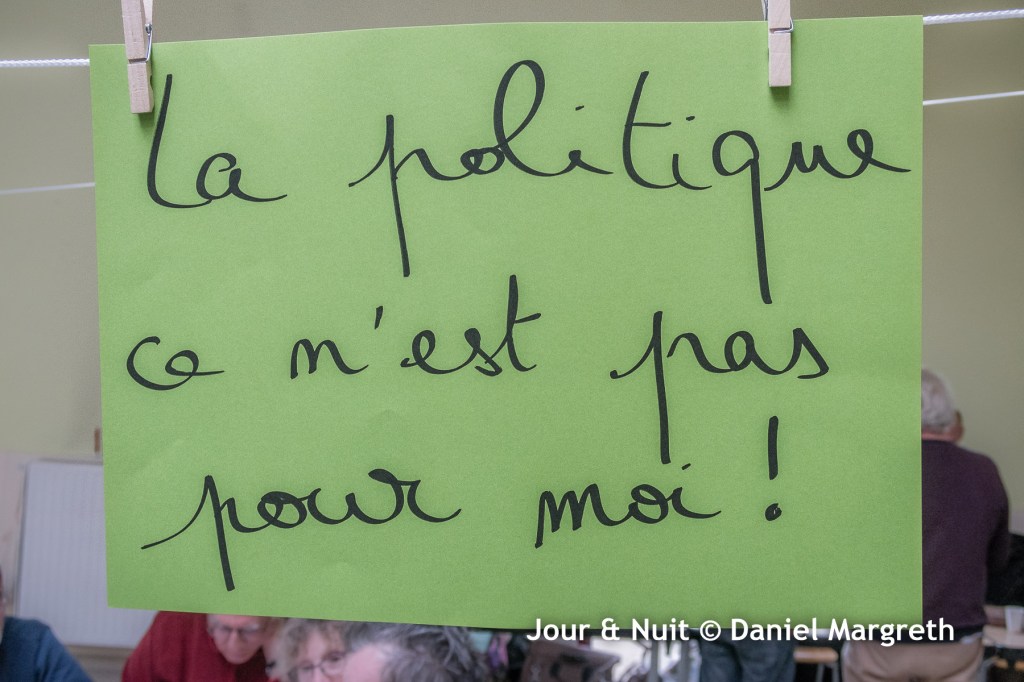 La politique
ce n'est pas
pour moi !
Jour & Nuit © Daniel Margreth